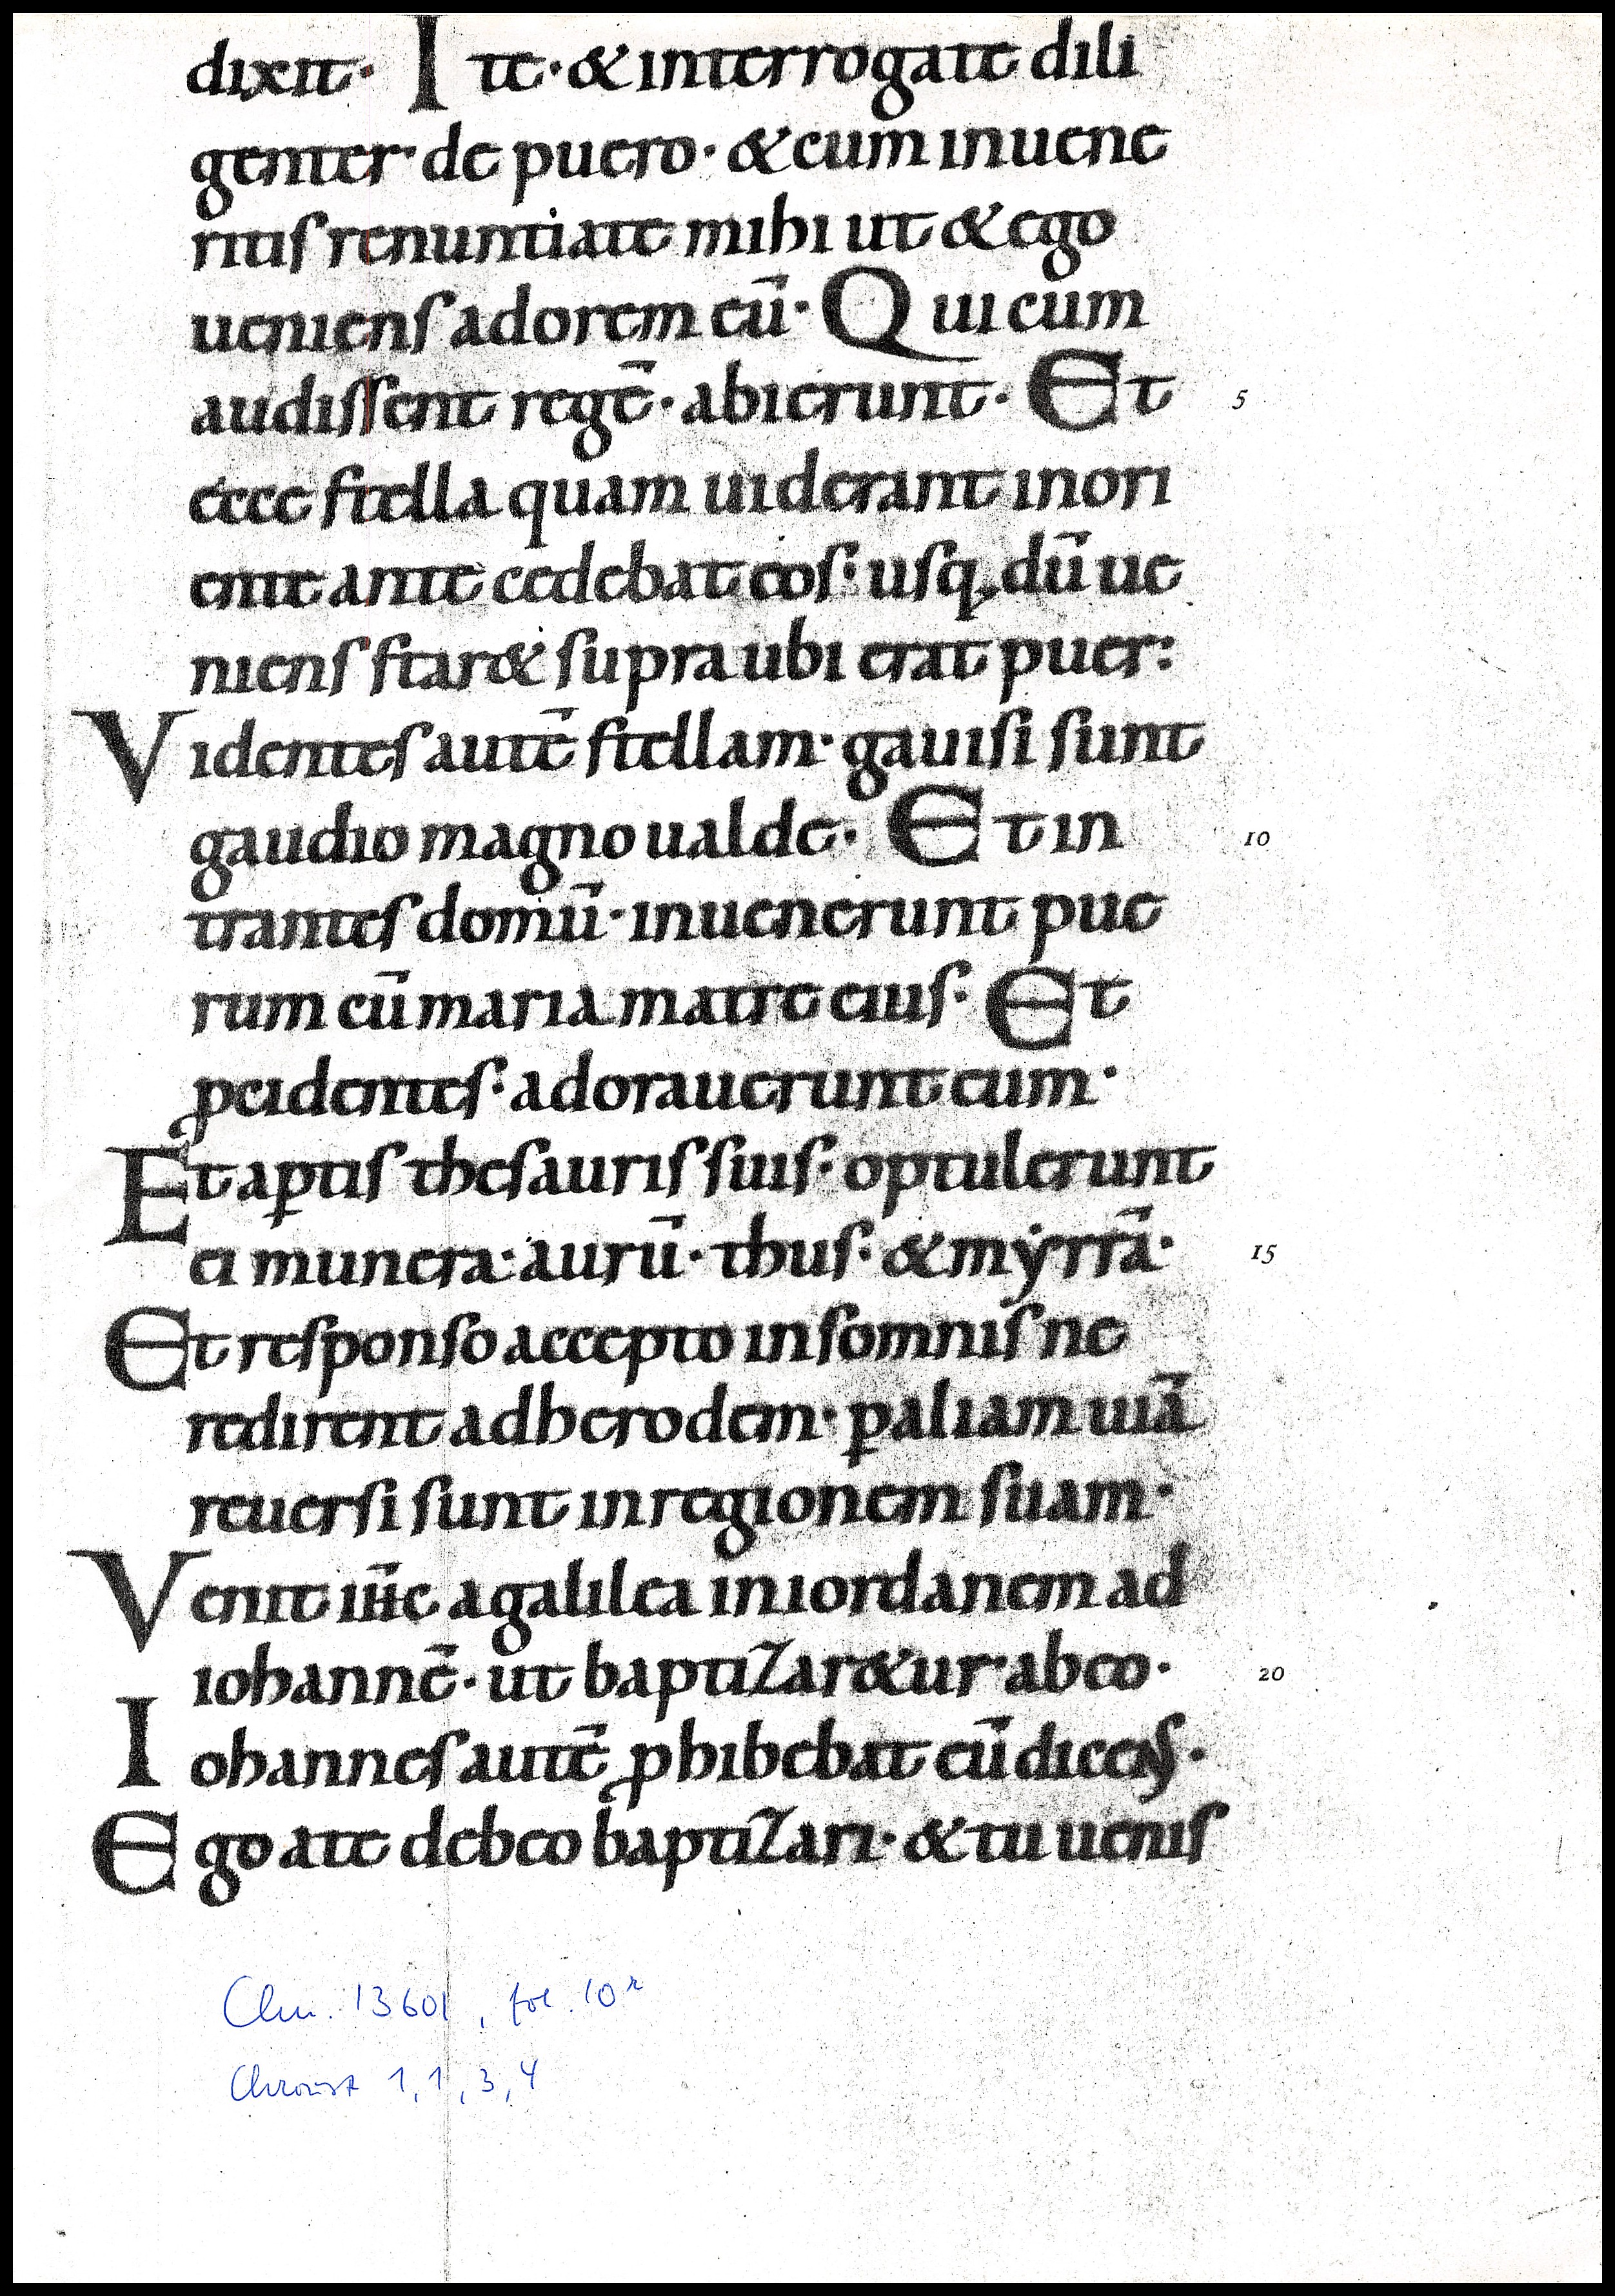 dixit· Ite·& interrogate dili
genter· de puero· & cum inuene
ritis renuntiate mihi ut & ego
ueniens adorem eū· Qui cum
audissent regē· abierunt· Et
ecce stella quam uiderant in ori
ente antecedebat eos: usq; dū ue
niens star& supra ubi erat puer:
Videntes autē stellam· gauisi sunt
gaudio magno ualde· Et in
trantes domū· inuenerunt pue
rum cū maria matre eius· Et
ꝓcidentes· adorauerunt eum·
Et aꝑtis thesauris suis· optulerunt
ei munera: aurū· thus: & mẏrrā·
Et responso accepto in somnis ne
redirent ad herodem· ꝑ aliam uiā
reuersi sunt in regionem suam·
Venit ihc̄ a galilea in iordanem ad
iohannē· ut baptizar&ur· ab eo·
Iohannes autē ꝓhibebat eū dicens·
Ego a te debeo baptizari· & tu uenis
5
10
15
20
Clm. 13601, fol. 10r
Chroust 1,1,3,4